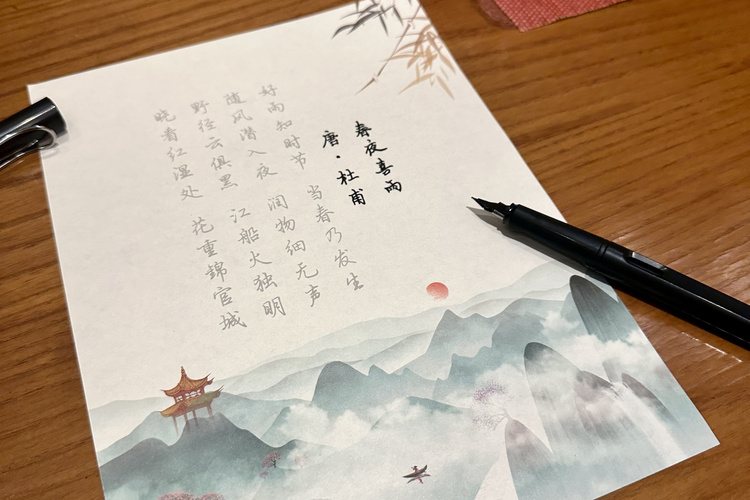 春夜喜雨
唐·杜甫
好雨知时节 当春乃发生
随风潜入夜 润物细无声
野径云俱黑 江船火独明
晓看红湿处 花重锦官城